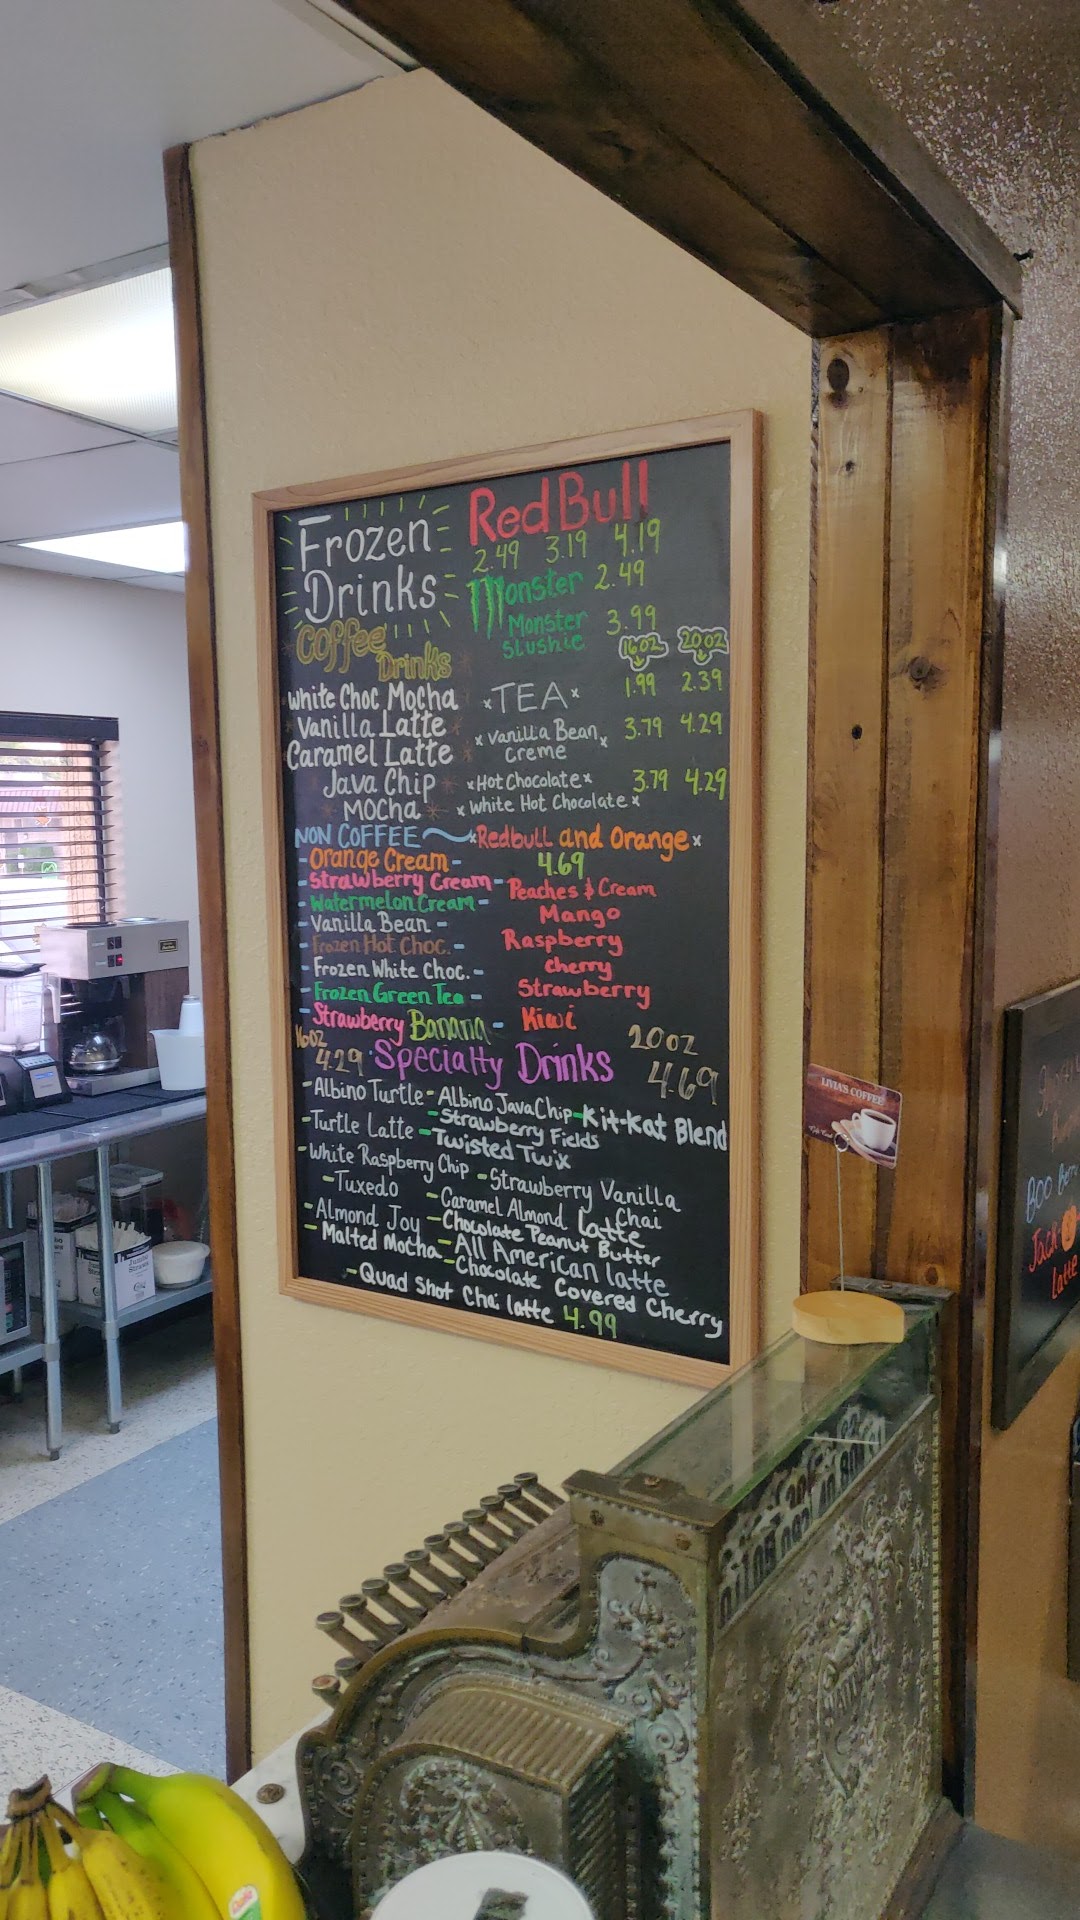 Frozen
Drinks
Coffee
Drinks
White Choc Mocha
Vanilla Latte
Caramel Latte
Java Chip
Mocha
NON COFFEE
- Orange Cream -
- Strawberry Cream -
- Watermelon Cream -
- Vanilla Bean -
- Frozen Hot Choc. -
- Frozen White Choc. -
- Frozen Green Tea -
- Strawberry Banana -
Red Bull
2.49 3.19 4.19
Monster 2.49
Monster 3.99
Slushie
16oz 20oz
x TEA x 1.99 2.39
x Vanilla Bean x 3.79 4.29
Creme
x Hot Chocolate x 3.79 4.29
x White Hot Chocolate x
x Redbull and Orange x
4.69
Peaches & Cream
Mango
Raspberry
cherry
Strawberry
Kiwi
16oz 20oz
4.29 Specialty Drinks 4.69
- Albino Turtle - Albino JavaChip - Kit-Kat Blend
- Strawberry Fields
- Turtle Latte - Twisted Twix
- White Raspberry Chip - Strawberry Vanilla
Chai
- Tuxedo - Caramel Almond Latte
- Almond Joy - Chocolate Peanut Butter
- Malted Mocha - All American latte
- Chocolate Covered Cherry
- Quad Shot Chai latte 4.99
LIVIA'S COFFEE
Boo Berry
Jack-O
Latte